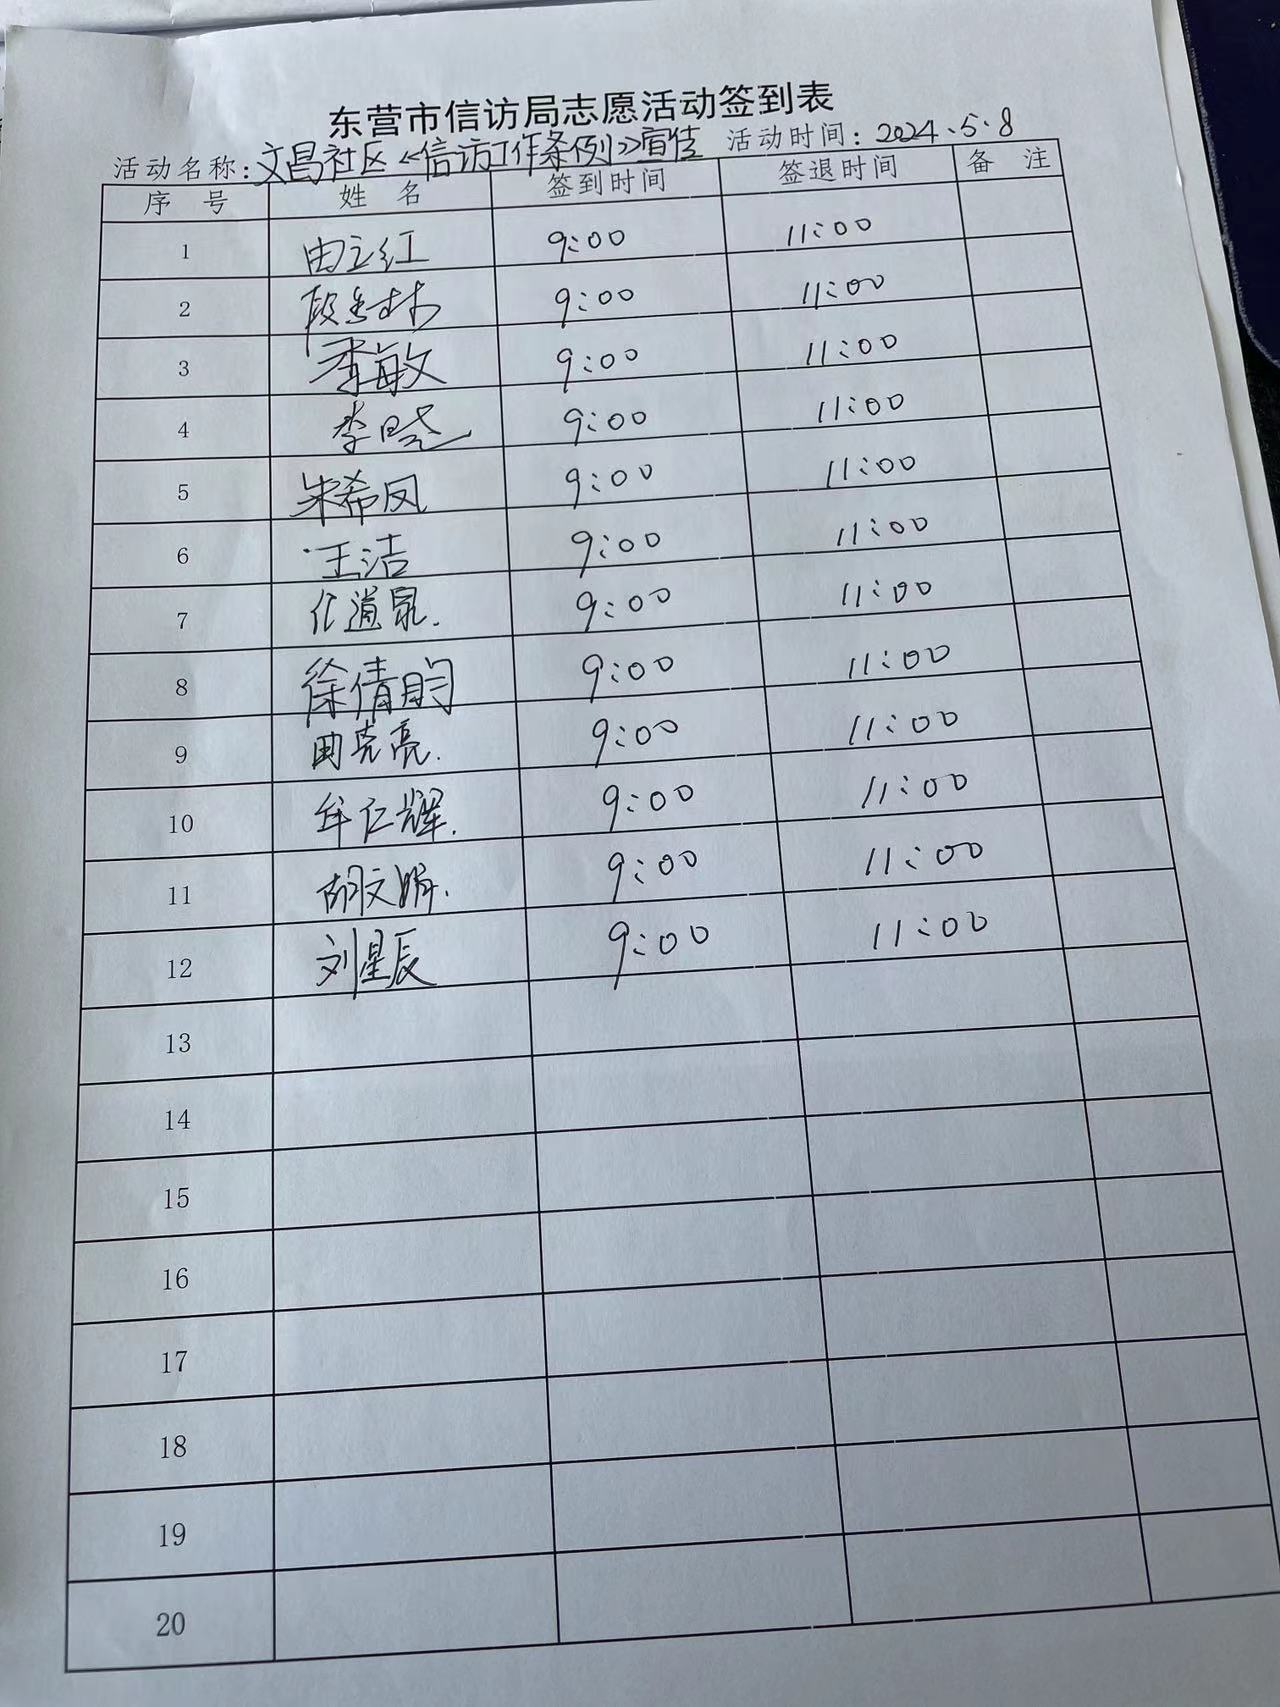 东营市信访局志愿活动签到表
活动名称:文昌社区《信访工作条例》宣传 活动时间:2024.5.8
序 号 姓 名 签到时间 签退时间 备 注
1 由立红 9:00 11:00
2 段 林 9:00 11:00
3 李敏 9:00 11:00
4 李 9:00 11:00
5 朱希凤 9:00 11:00
6 王洁 9:00 11:00
7 9:00 11:00
8 徐倩昀 9:00 11:00
9 曲克亮. 9:00 11:00
10 牟仁辉. 9:00 11:00
11 胡文娟. 9:00 11:00
12 刘星辰 9:00 11:00
13
14
15
16
17
18
19
20